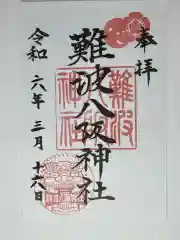 奉拝
難波八阪神社
令和六年三月十六日